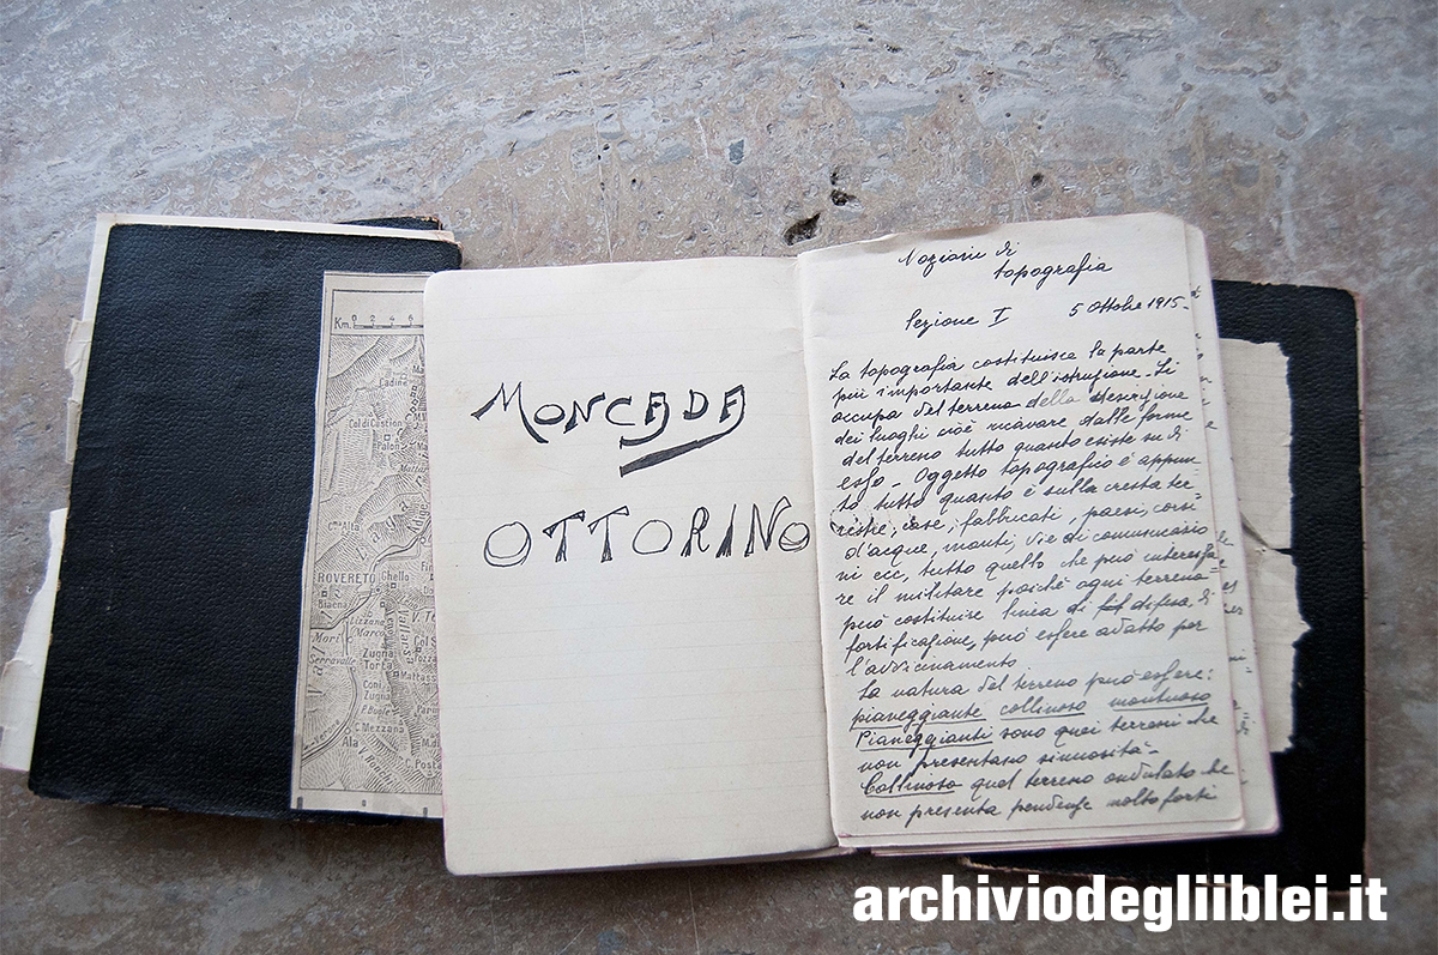 Km. 0 2 4 6
Cadine
Col di Castion
Palon
Mattar
C.ma Alta
Lagar
Adige
ROVERETO
Ghello
Biaena
Lizzana
Marco
Mori
Vallars
V. Te
Col S
Serravalle
Zugna
Torta
Pozza
Mattass
Coni
Zugna
P. Buole
C. Mezzana
Ala
V. Ronchi
M. di
C. Posta
MONCADA
OTTORINO
Nozioni di
topografia
lezione I 5 Ottobre 1915-
La topografia costituisce la parte
più importante dell'istruzione. Si
occupa del terreno della descrizione
dei luoghi cioè ricavare dalle forme
del terreno tutto quanto esiste su di
esso - Oggetto topografico è appun
to tutto quanto è sulla cresta ter=
restre; case, fabbricati, paesi, corsi
d'acque, monti, vie di comunicazio
ni ecc, tutto quello che può interessa
re il militare poichè ogni terreno
può costituire linea di difesa, di
fortificazione, può essere adatto per
l'avvicinamento
La natura del terreno può essere:
pianeggiante collinoso montuoso
Pianeggianti sono quei terreni che
non presentano sinuosità-
Collinoso quel terreno ondulato che
non presenta pendenze molto forti
archiviodegliiblei.it